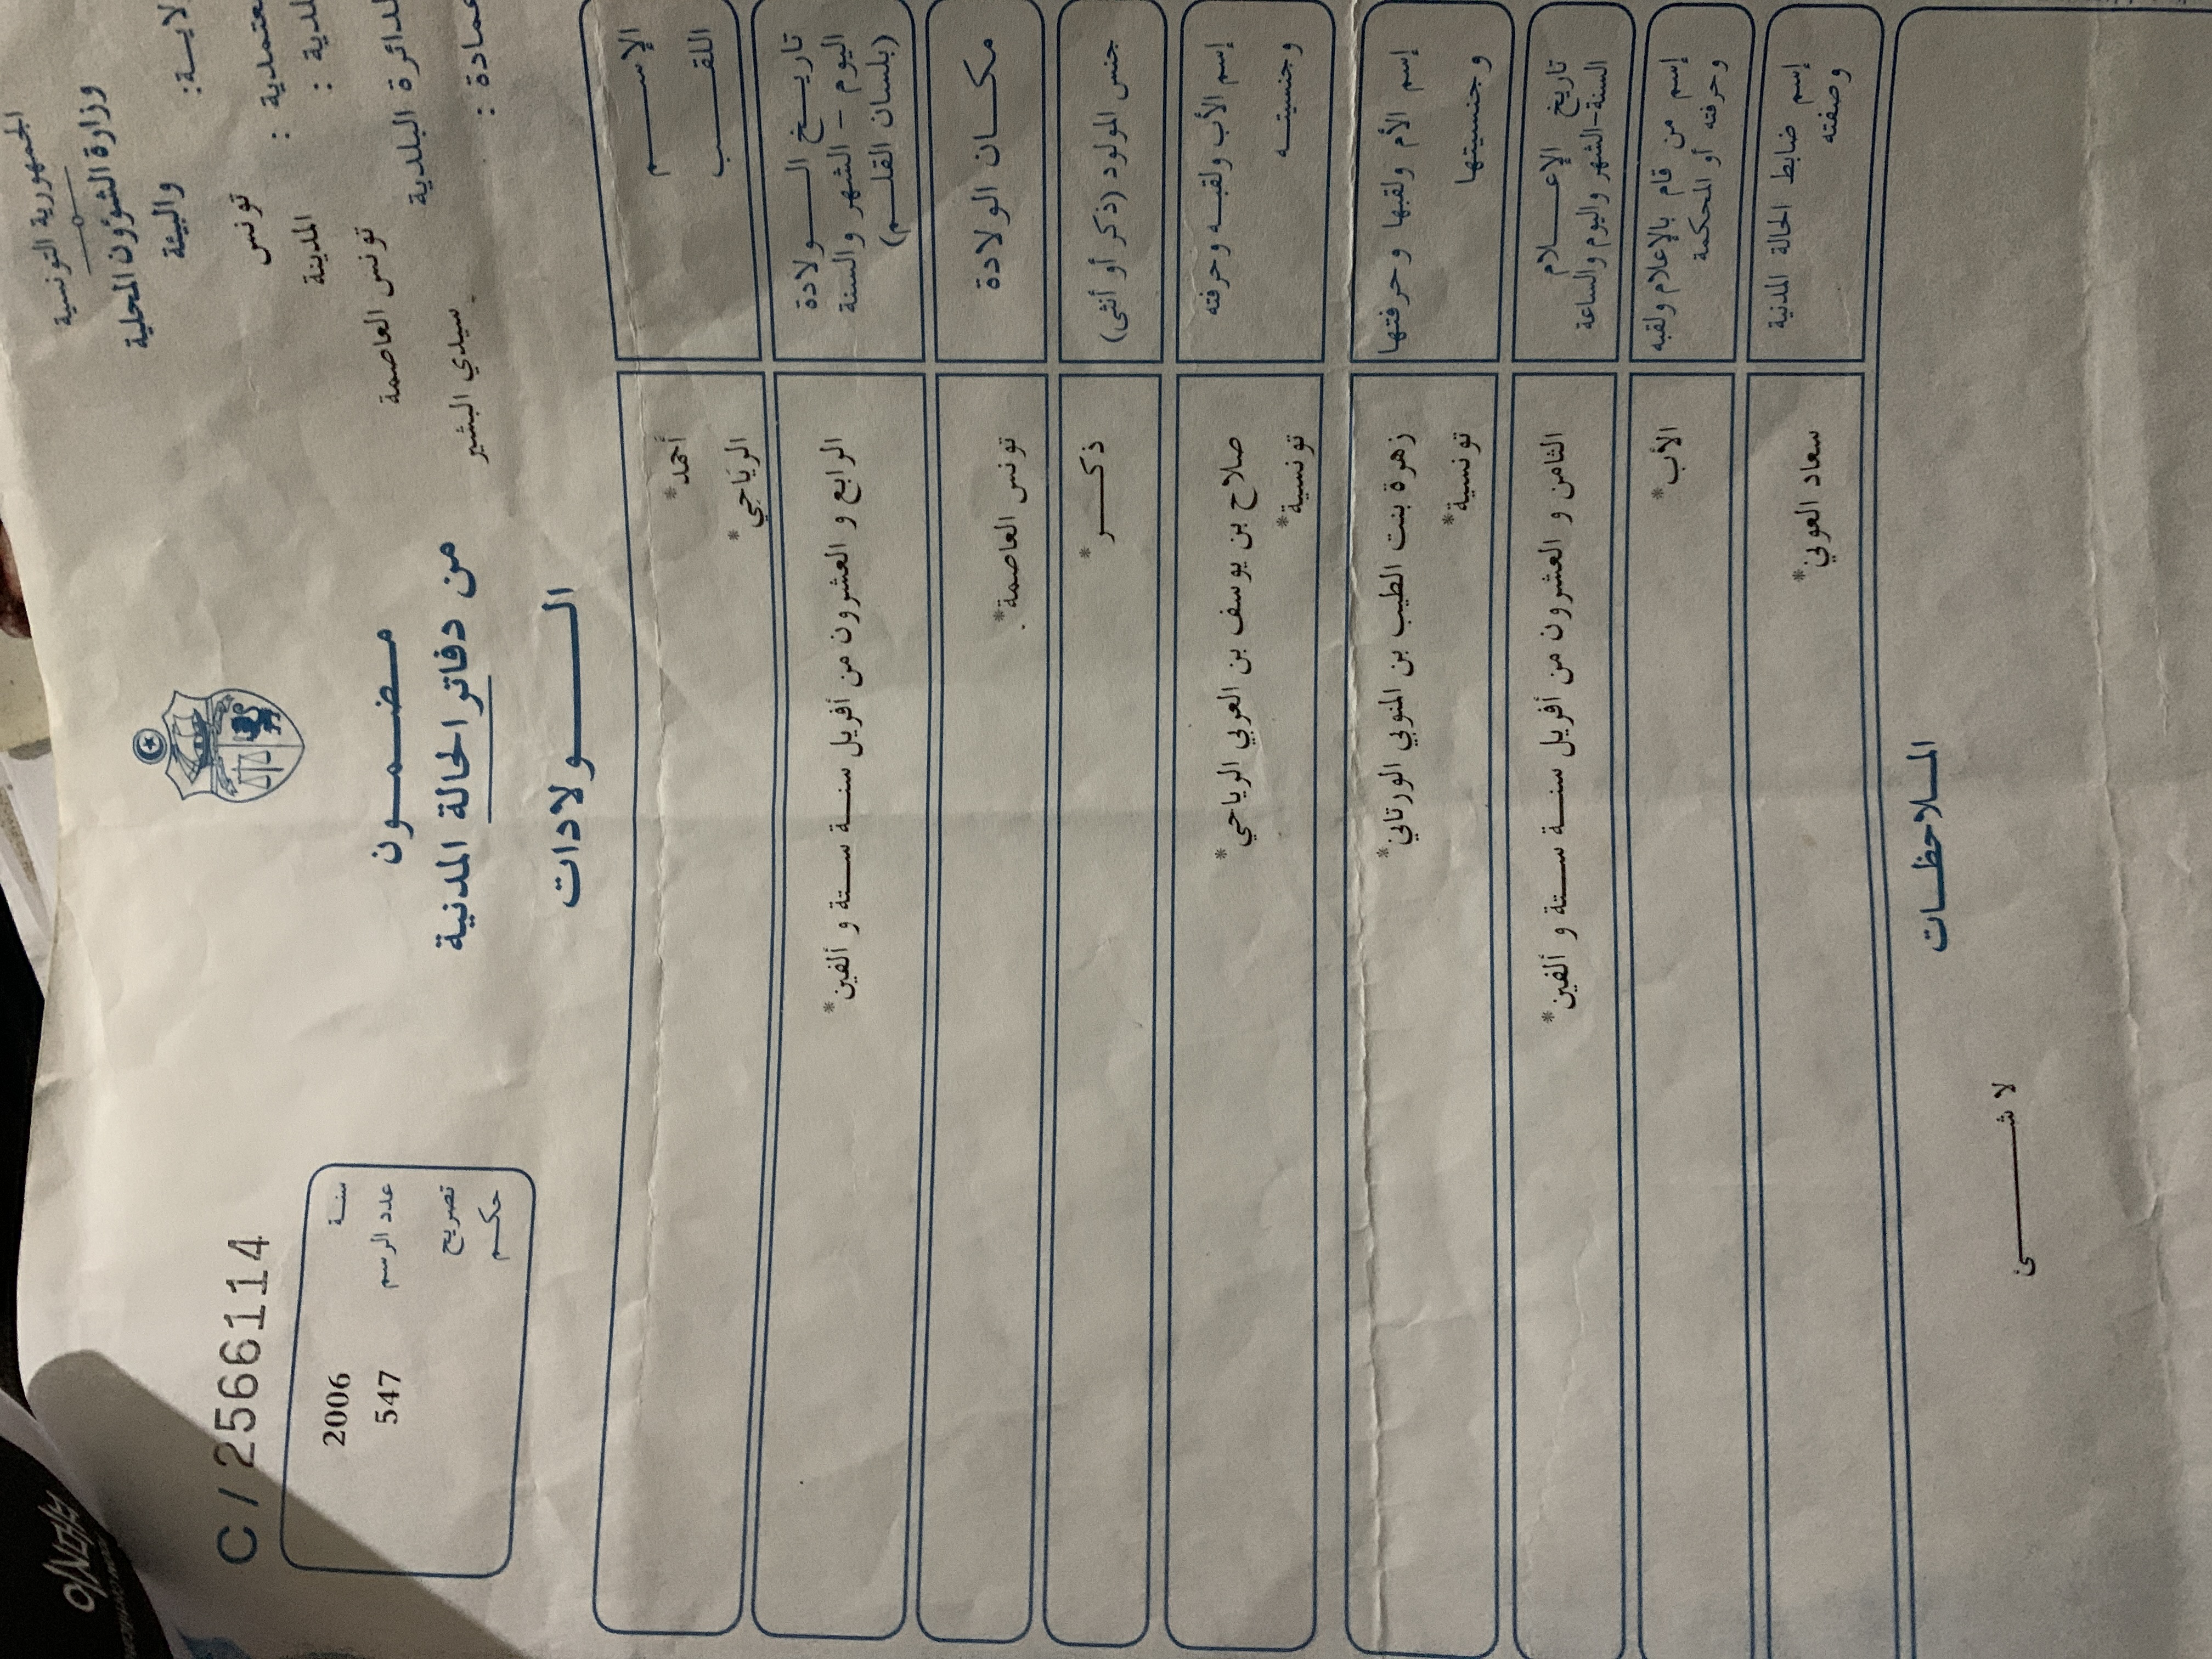 الجمهورية التونسية
وزارة الشؤون المحلية
والبيئة
تونس
معتمدية : المدينة
تونس العاصمة
الدائرة البلدية
عمادة : سيدي البشير
مضمون
من دفاتر الحالة المدنية
الولادات
C / 2566114
سنة 2006
عدد الرسم 547
تصريح
حكم
الإسم أحمد*
اللقب الرياحي*
تاريخ الولادة
اليوم - الشهر والسنة
(بلسان القلم)
الرابع و العشرون من أفريل سنة ستة و ألفين*
مكان الولادة
تونس العاصمة*
جنس المولود (ذكر أو أنثى)
ذكر*
إسم الأب ولقبه وحرفته
صلاح بن يوسف بن العربي الرياحي*
وجنسيته
تونسية*
إسم الأم ولقبها وحرفتها
زهرة بنت الطيب بن المنوبي الورتاني*
وجنسيتها
تونسية*
تاريخ الإعلام
السنة-الشهر واليوم والساعة
الثامن و العشرون من أفريل سنة ستة و ألفين*
إسم من قام بالإعلام ولقبه
وحرفته أو المحكمة
الأب*
إسم ضابط الحالة المدنية
وصفته
سعاد العوني*
الملاحظات
لا شئ